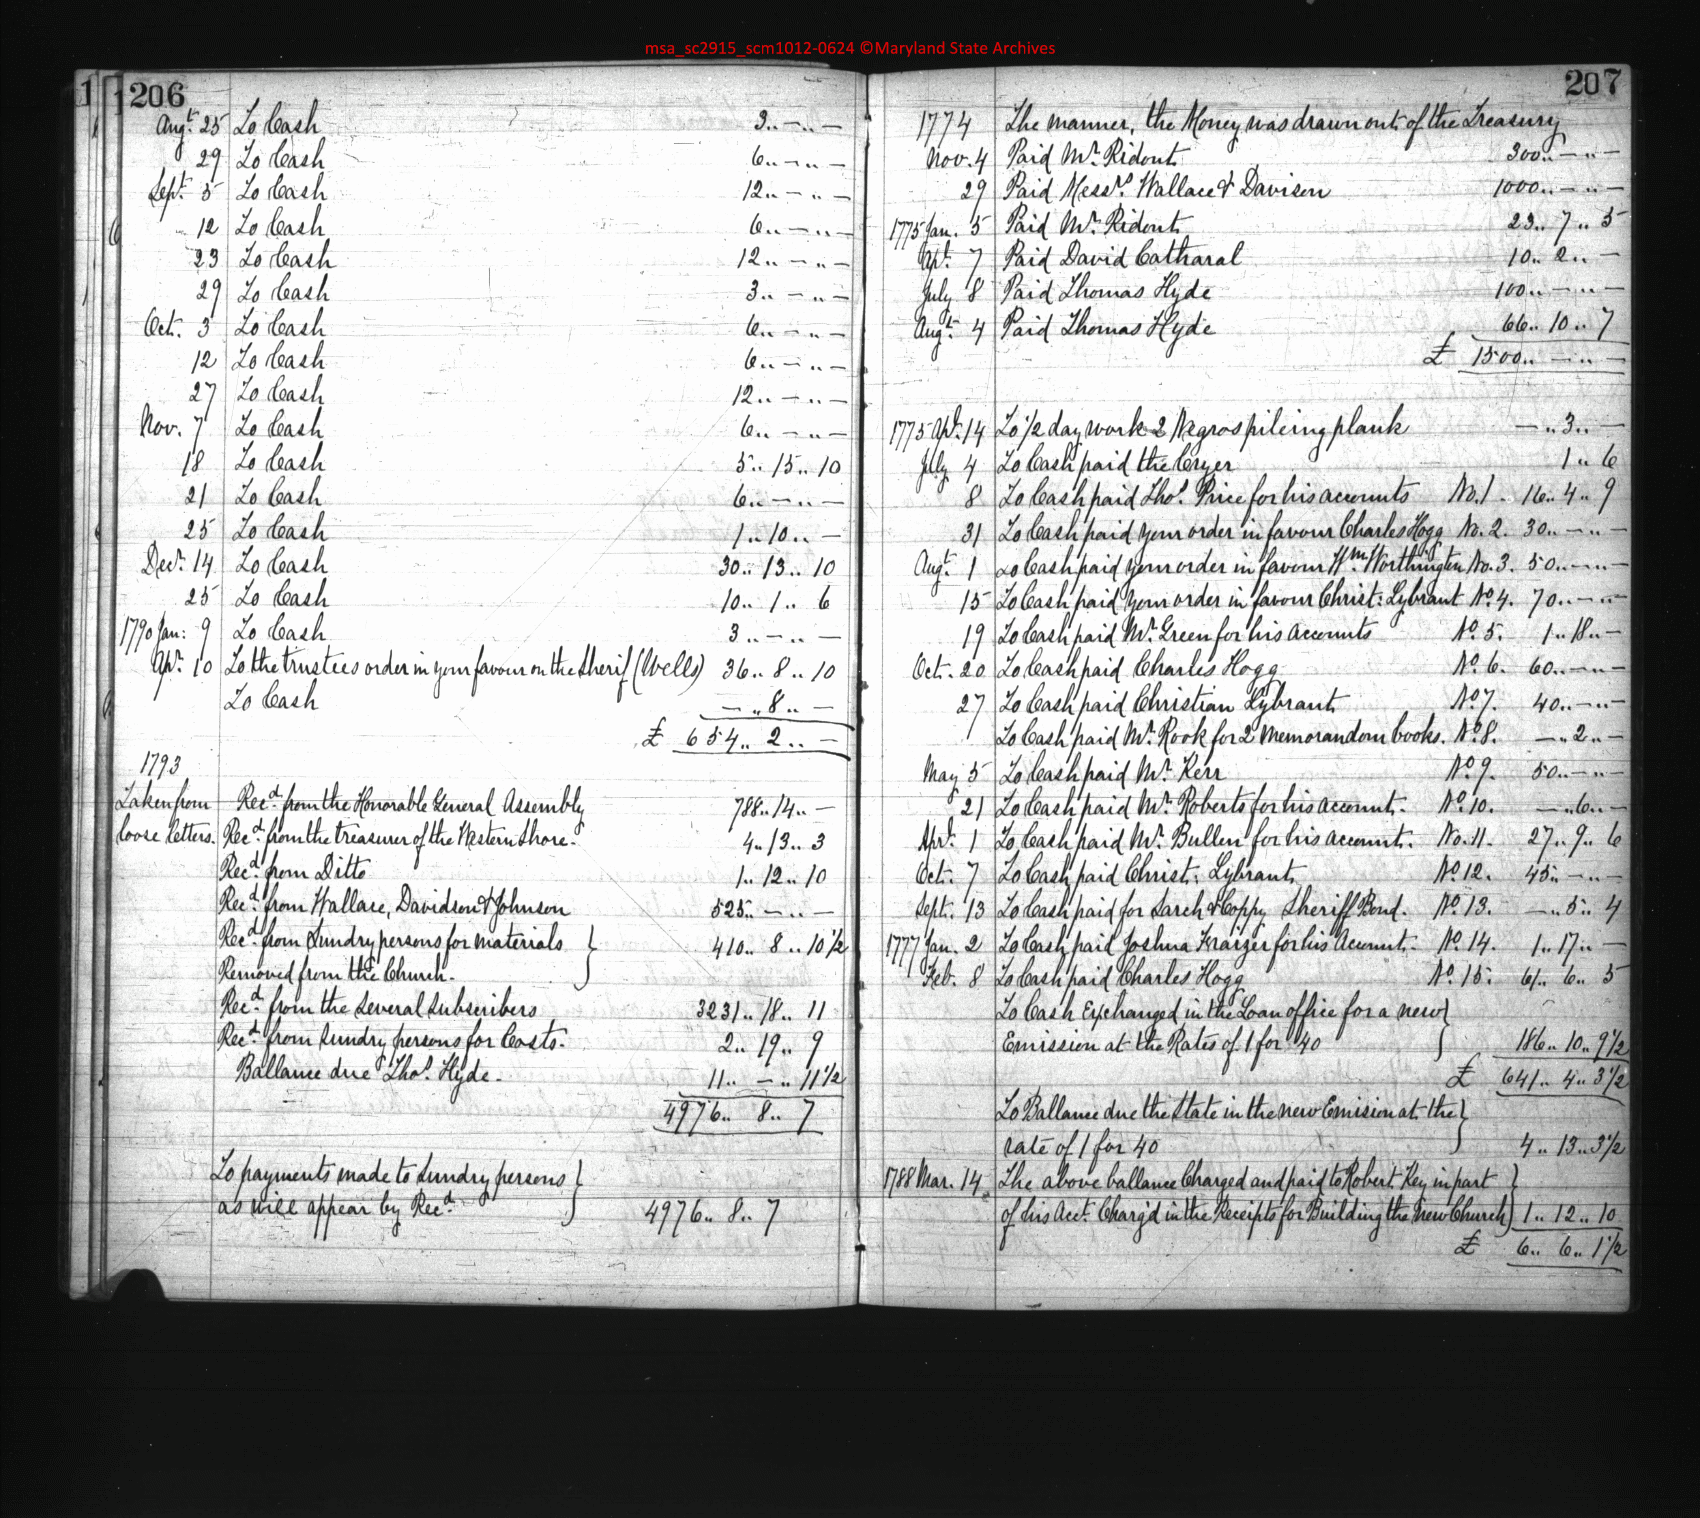 msa_sc2915_scm1012-0624 ©Maryland State Archives
1 206
Augt. 25 To Cash 3.. — .. —
29 To Cash 6.. — .. —
Sept. 5 To Cash 12.. — .. —
12 To Cash 6.. — .. —
23 To Cash 12.. — .. —
29 To Cash 3.. — .. —
Oct. 3 To Cash 6.. — .. —
12 To Cash 6.. — .. —
27 To Cash 12.. — .. —
Nov. 7 To Cash 6.. — .. —
18 To Cash 5.. 15.. 10
21 To Cash 6.. — .. —
25 To Cash 1.. 10.. —
Decr. 14 To Cash 30.. 13.. 10
25 To Cash 10.. 1.. 6
1790 Jan: 9 To Cash 3.. — .. —
Apr. 10 To the trustees order in your favour on the Sherif (Wells) 36.. 8.. 10
To Cash — .. 8.. —
£ 654.. 2.. —
1793
Taken from Recd. from the Honorable General Assembly 788.. 14.. —
loose letters. Recd. from the treasurer of the Western Shore. 4.. 13.. 3
Recd. from Ditto 1.. 12.. 10
Recd. from Wallace, Davidson & Johnson 525.. — .. —
Recd. from Sundry persons for materials } 410.. 8.. 10 1/2
Removed from the Church.
Recd. from the Several Subscribers 3231.. 18.. 11
Recd. from Sundry persons for Costs. 2.. 19.. 9
Ballance due Thos. Hyde. 11.. — .. 11 1/2
4976.. 8.. 7
To payments made to Sundry persons }
as will appear by Recd. 4976.. 8.. 7
207
1774 The manner, the Money was drawn out of the Treasury
Nov. 4 Paid Mr. Ridout 300.. — .. —
29 Paid Messrs. Wallace & Davison 1000.. — .. —
1775 Jan. 5 Paid Mr. Ridout 23.. 7.. 5
Apr. 7 Paid David Catharal 10.. 2.. —
July 8 Paid Thomas Hyde 100.. — .. —
Augt. 4 Paid Thomas Hyde 66.. 10.. 7
£ 1500.. — .. —
1775 Apr. 14 To 1/2 day work 2 Negros pileing plank — .. 3.. —
July 4 To Cash paid the Cryer 1.. 6
8 To Cash paid Thos. Price for his accounts No. 1. 16.. 4.. 9
31 To Cash paid your order in favour Charles Hogg No. 2. 30.. — .. —
Augt. 1 To Cash paid your order in favour Wm. Worthington No. 3. 50.. — .. —
15 To Cash paid your order in favour Christ: Lybrant No. 4. 70.. — .. —
19 To Cash paid Mr. Green for his accounts No. 5. 1.. 18.. —
Oct. 20 To Cash paid Charles Hogg No. 6. 60.. — .. —
27 To Cash paid Christian Lybrant No 7. 40.. — .. —
To Cash paid Mr. Rook for 2 Memorandom books. No. 8. — .. 2.. —
May 5 To Cash paid Mr. Kerr No 9. 50.. — .. —
21 To Cash paid Mr. Roberts for his account. No. 10. — .. 6.. —
Apr. 1 To Cash paid Mr. Bullen for his account. No. 11. 27.. 9.. 6
Oct. 7 To Cash paid Christ: Lybrant No. 12. 45.. — .. —
Sept. 13 To Cash paid for Sarch & Coppy Sheriff Bond. No. 13. — .. 5.. 4
1777 Jan. 2 To Cash paid Joshua Frazer for his Acount. No. 14. 1.. 17.. —
Feb. 8 To Cash paid Charles Hogg No. 15. 61.. 6.. 5
To Cash Exchanged in the Loan office for a new }
Emission at the Rates of 1 for 40 186.. 10.. 9 1/2
£ 641.. 4.. 3 1/2
To Ballance due the State in the new Emision at the }
rate of 1 for 40 4.. 13.. 3 1/2
1788 Mar. 14. The above ballance Charged and paid to Robert Key in part }
of his Acct. Charg'd in the Receipts for Building the New Church 1.. 12.. 10
£ 6.. 6.. 1 1/2